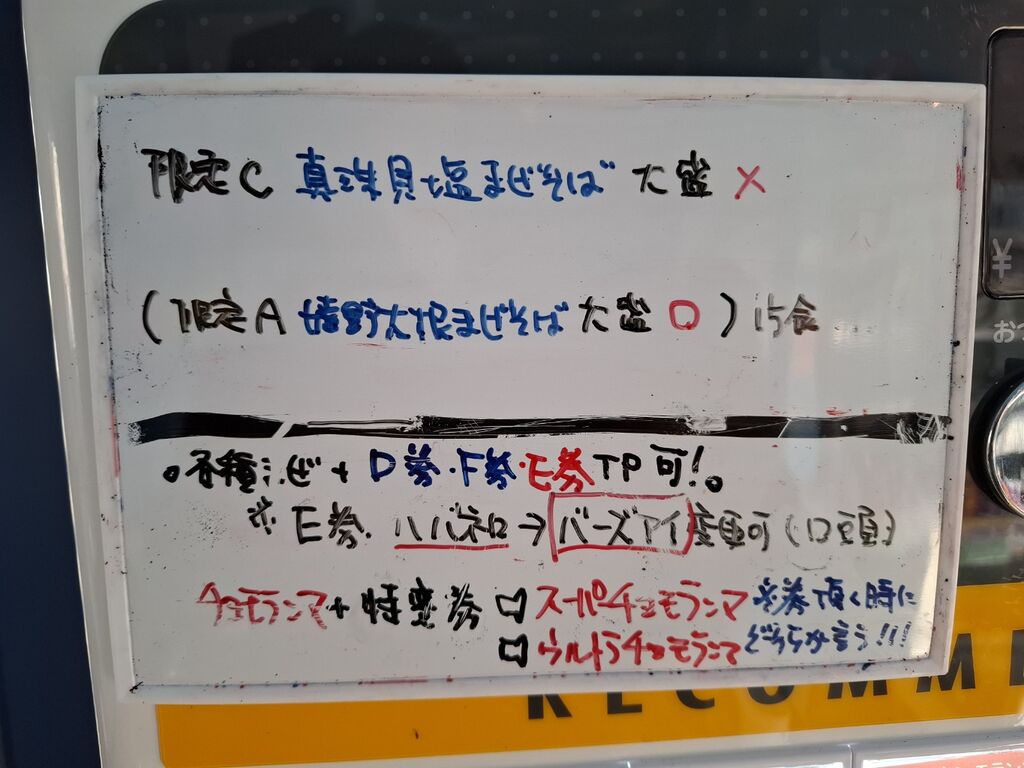 限定C 真珠貝塩まぜそば 大盛 X
(限定A 嬉野大根まぜそば 大盛 〇) 15食
。各種まぜ+D券・F券・E券TP可!。
※E券. ハバネロ→バーズアイ変更可(口頭)
チョモランマ+特変券 □スーパーチョモランマ ※券頂く時に
□ウルトラチョモランマ どちらか言う!!!
¥
RECOMME